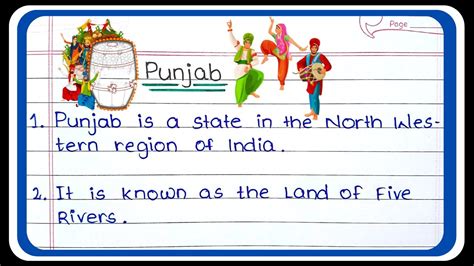 Page
Punjab
1. Punjab is a state in the North Wes-
tern region of India.
2. It is known as the Land of Five
Rivers.